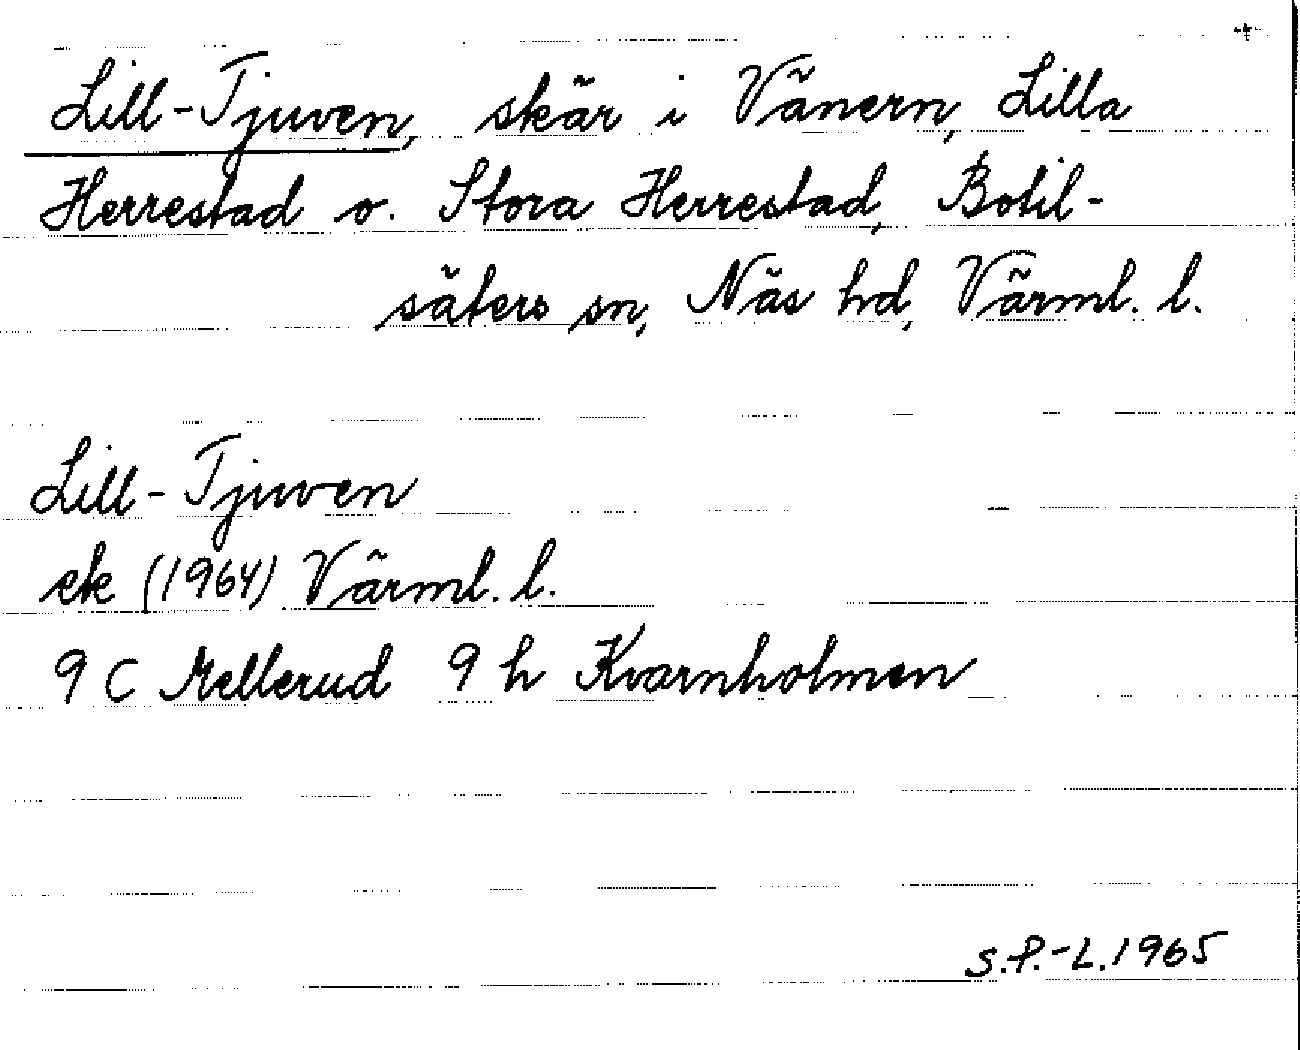 Lill-Tjuven, skär i Vänern, Lilla
Herrestad o. Stora Herrestad, Botil-
säters sn, Näs hd, Värml. l.
Lill-Tjuven
ek (1964) Värml. l.
9 C Mellerud 9 h Kvarnholmen
S.P.-L. 1965